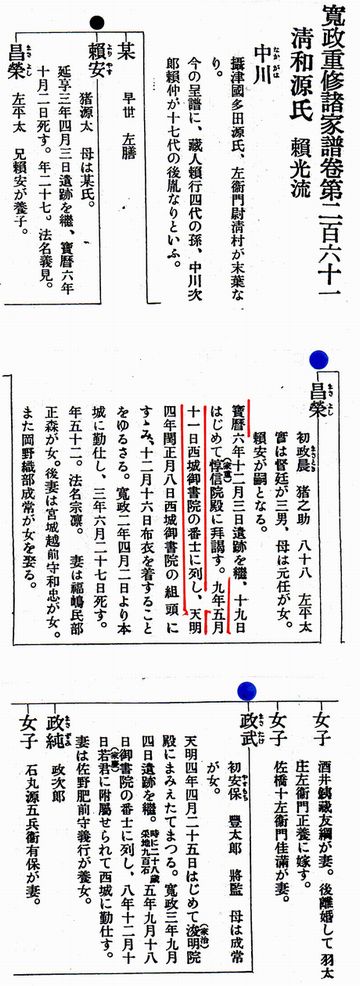 寛政重修諸家譜卷第二百六十一
淸和源氏 賴光流
中川
なかがは
攝津國多田源氏、左衞門尉淸村が末葉な
り。
今の呈譜に、藏人賴行四代の孫、中川次
郎賴仲が十七代の後胤なりといふ。
某 早世 左膳
賴安
よりやす
猪源太 母は某氏。
延享三年四月三日遺跡を繼、寶曆六年
十月二日死す。年二十七。法名義見。
昌榮 左平太 兄賴安が養子。
まさよし
昌榮
まさよし
初政晨 猪之助 八十八 左平太
實は督廷が三男、母は元任が女。
賴安が嗣となる。
寶曆六年十二月三日遺跡を繼、十九日
はじめて惇信院殿(家重)に拜謁す。九年五月
十一日西城御書院の番士に列し、天明
四年閏正月八日西城御書院の組頭に
すゝみ、十二月十六日布衣を着すること
をゆるさる。寛政二年四月二日より本
城に勤仕し、三年六月二十七日死す。
年五十二。法名宗凛。 妻は福嶋民部
正森が女。後妻は宮城越前守和忠が女。
また岡野織部成常が女を娶る。
女子 酒井 藏友綱が妻。後離婚して羽太
庄左衞門正養に嫁す。
女子 佐橋十左衞門佳滿が妻。
政武
まさたけ
初安保 豐太郎 將監 母は成常
が女。
天明四年四月二十五日はじめて浚明院(家治)
殿にまみえたてまつる。寛政三年九月
四日遺跡を繼。時に二十八歲 采地九百石 五年九月十八
日御書院の番士に列し、八年十二月十
日若君(家慶)に附屬せられて西城に勤仕す。
妻は佐野肥前守義行が養女。
政純 政次郎
まさずみ
女子 石丸源五兵衞有保が妻。